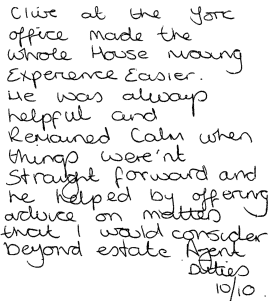 Clive at the York
office made the
whole House moving
Experience Easier.
He was always
helpful and
Remained Calm when
things were'nt
Straight forward and
he helped by offering
advice on matters
that I would consider
beyond estate Agent
Duties
10/10.